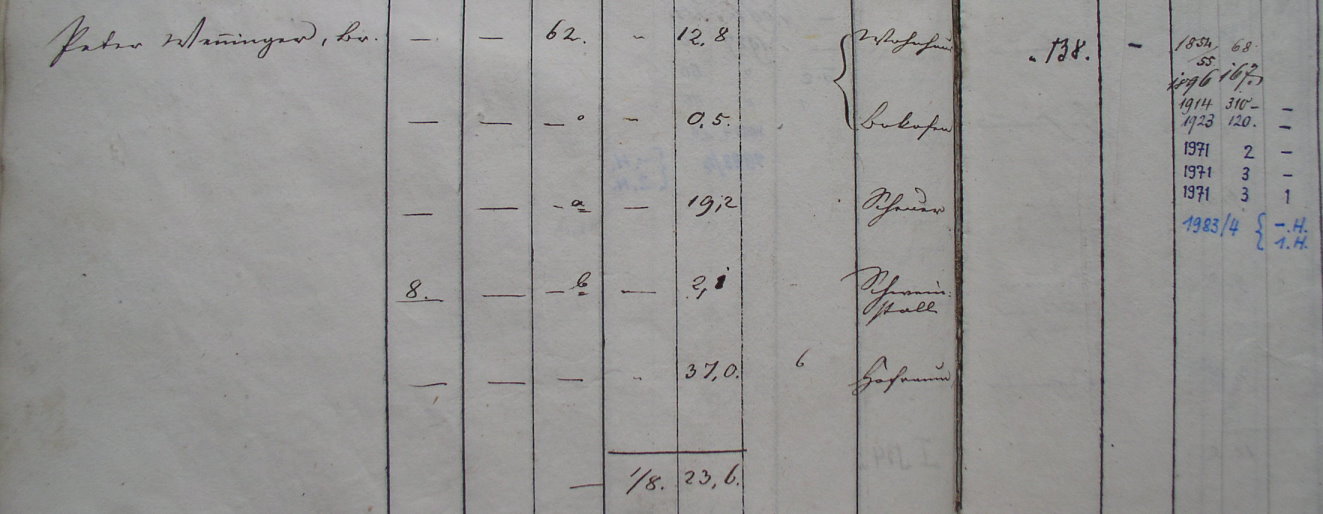 Peter Wenninger, br. — — 62. - 12,8 Wohnhaus 138. - 1854/55 68
1896 167.
— — — ° - 0,5. Bakofen 1914 310 - -
1923 120. -
1971 2 -
1971 3 -
— — - a - 19,2 Scheuer 1971 3 1
1983/4 { -.H.
1.H.
8. — - b — 2,1 Schwein-
stall
— — — - 37,0. 6 Hofraum
— 1/8. 23,6.